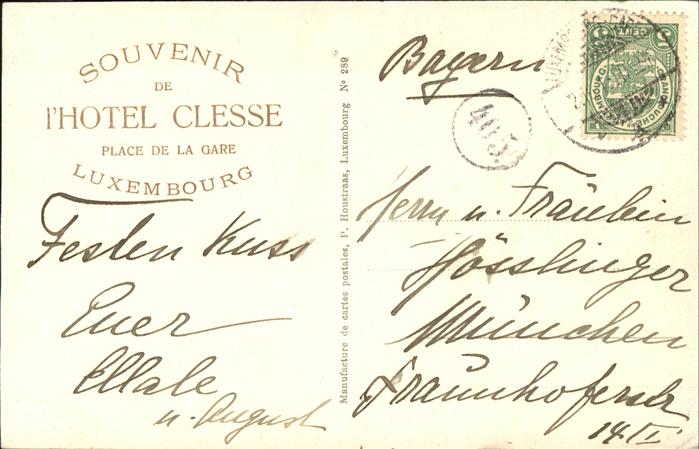 SOUVENIR
DE
l'HOTEL CLESSE
PLACE DE LA GARE
LUXEMBOURG
Festen Kuss
Euer
u. August
Manufacture de cartes postales, P. Houstraas, Luxembourg Nº 289
Bayern
Herrn u. Fräulein
Hösslinger
München
Fraunhoferstr
14/I